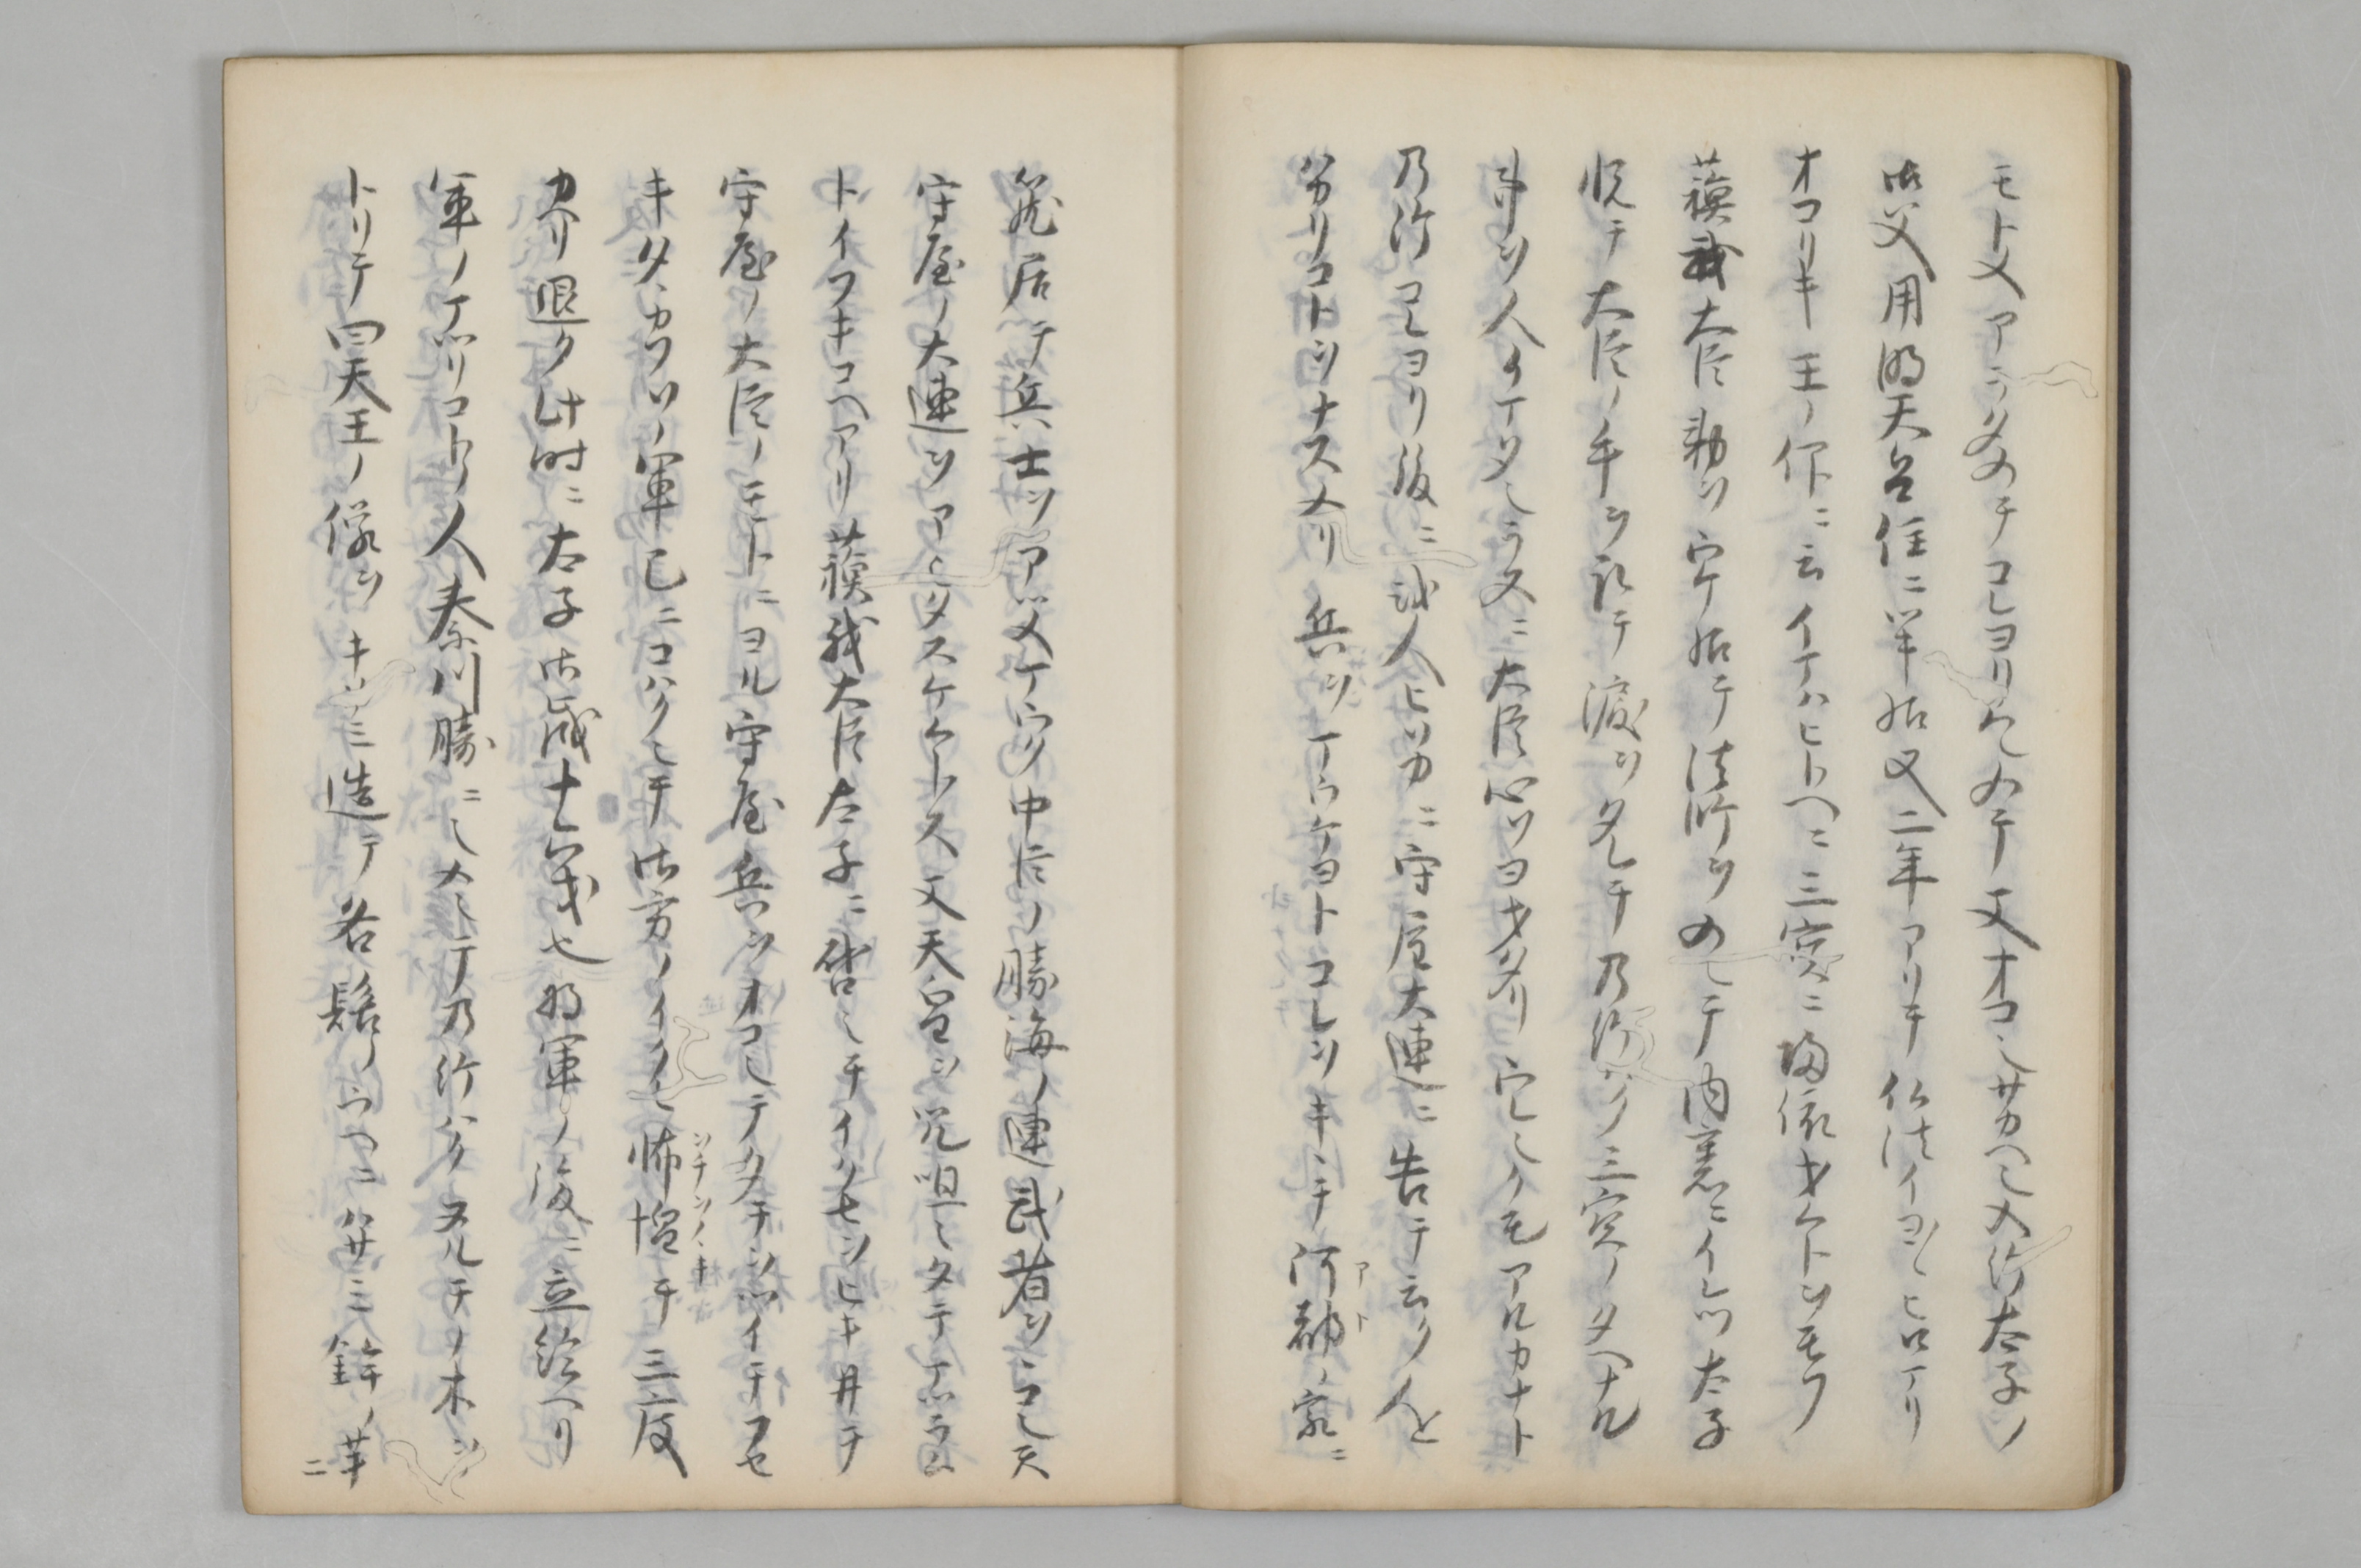 モトメアラタメテコレヨリクワヘテ又オコシサカヘシメ給太子ノ
御父用明天皇位ニツキ給又二年アリテ仏法イヨヽヒロマリ
オコリキ王ノ仰ニ云イマハヒトヘニ三宝ニ帰依せムトオモフ
蘓我大臣勅ヲウケ給テ法師ヲメシテ内裏ニイレツ太子
悦テ大臣ノ手ヲ取テ涙ヲタレテ乃給ハク三宝ノタヘナル
事ヲ人イマタシラヌニ大臣心ヲヨせタリウレシクモアルカナト
乃給コレヨリ後ニ或人ヒソカニ守屋大連ニ告テ云ク人と
ハカリコトヲナスメリ兵ヲマウケヨトコレヲキヽテ河都ノ家ニ
籠居テ兵士ヲアツメマウク中臣ノ勝海ノ連武者ヲヽコシテ
守屋ノ大連ヲアヒタスケムトス又天皇ヲ咒咀シタテマツラム
トイフキコヘアリ蘓我大臣太子ニ啓シテイクサヲヒキ井テ
守屋ノ大臣ノモトニヨル守屋兵ヲオコシテタテヲツイテフせ
キタヽカフソノ軍已ニコハクシテ御方ノイクサ怖惶テ三度
カヘリ退ク此時ニ太子御歳十六歳也将軍ノ後ニ立給ヘリ
軍ノマツリコト人秦川勝ニシメシテ乃給ハクヌルテノ木ヲ
トリテ四天王ノ像ヲキサミ造テ各髻ノウヘニハサミ鉾ノサキ
ニ
ヲチヲノヽキ
アト